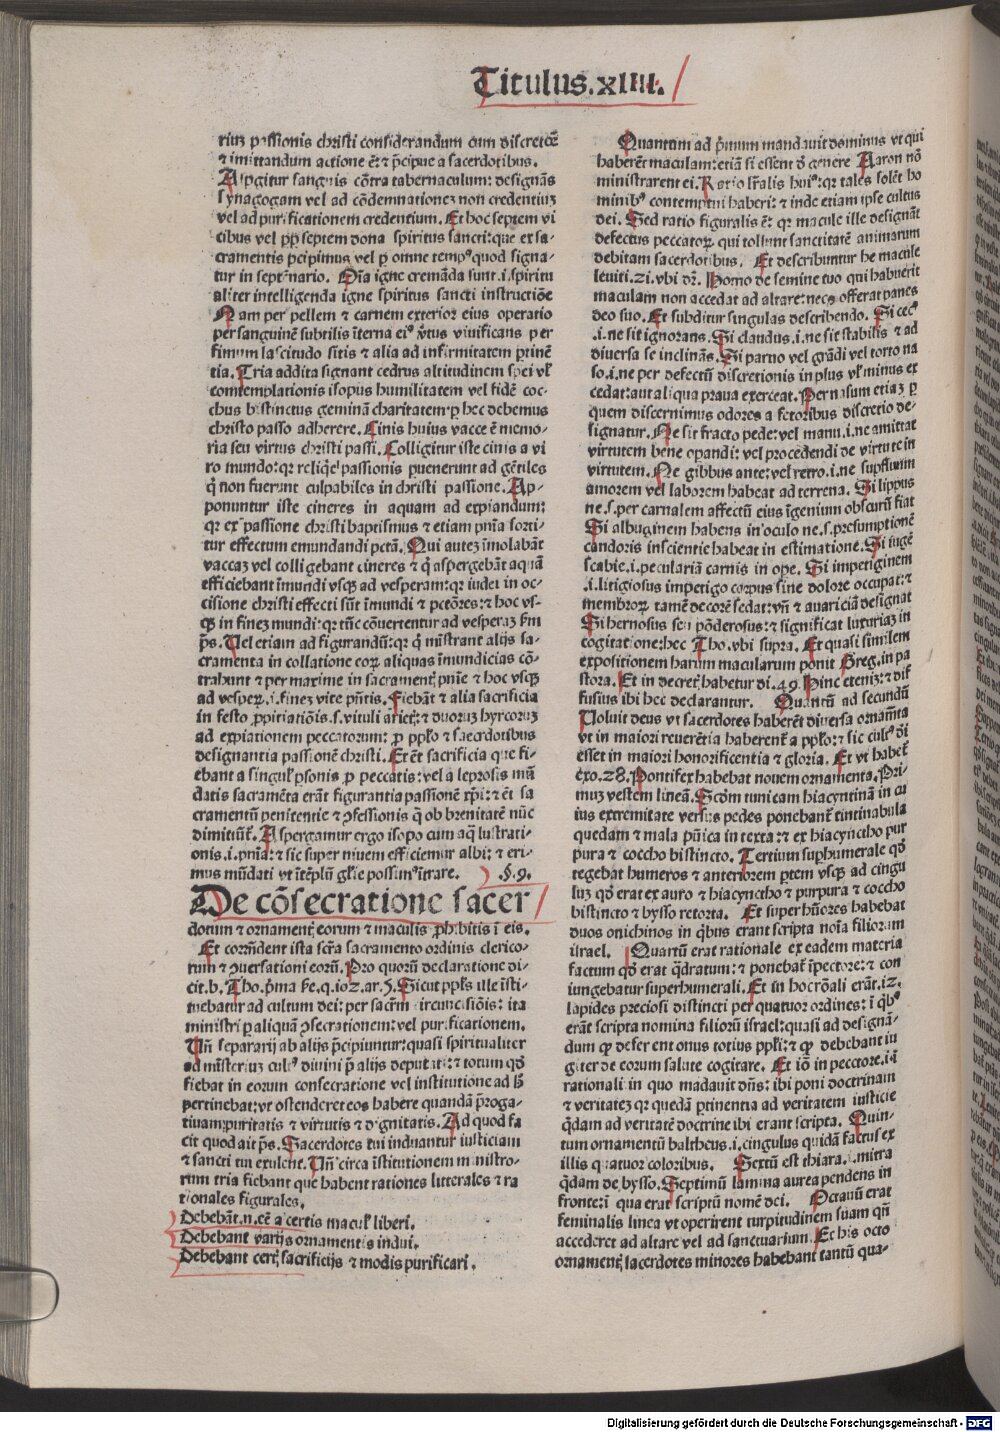 Titulus.xIIII.
rituʒ passionis christi considerandum cum discretõe
⁊ imittandum actione ẽt ⁊ p̃cipue a sacerdotibus.
Aspgitur sanguis cõtra tabernaculum: designãs
synagogam vel ad cõdemnationeʒ non credentiuʒ
vel ad purificationem credentium. Et hoc septem vi
cibus vel ꝓp̃ septem dona spiritus sancti: que ex sa-
cramentis pcipimus vel ꝑ omne tempꝰ quod signa-
tur in septẽnario. Oĩa igne cremãda sunt .i. spiritu
aliter intelligenda igne spiritus sancti instructiõe
Nam per pellem ⁊ carnem exterior eius operatio
per sanguinẽ subtilis ĩterna eiꝰ ṽtus viuificans per
fimum lascitudo sitis ⁊ alia ad infirmitatem ꝑtinẽ
tia. Tria addita signant cedrus altitudinem spei vł
comtemplationis isopus humilitatem vel fidẽ coc-
chus bistinctus geminã charitatem ꝑ hec debemus
christo passo adherere. Cinis huius vacce ẽ memo-
ria seu virtus christi passi. Colligitur iste cinis a vi
ro mundo: qꝛ reliq̃e passionis puenerunt ad gẽtiles
q̃ non fuerunt culpabiles in christi passione. Ap-
ponuntur iste cineres in aquam ad expiandum:
qꝛ ex passione christi baptismus ⁊ etiam pñia sorti-
tur effectum emundandi pctã. Qui auteʒ ĩmolabãt
vaccaʒ vel colligebant cineres ⁊ q̃ aspergebãt aquã
efficiebant ĩmundi vsqꝫ ad vesperam: qꝛ iudei in oc-
cisione christi effecti sũt ĩmundi ⁊ pctõres: ⁊ hoc vs-
qꝫ in fineʒ mundi: qꝛ tũc cõuertentur ad vesperaʒ ẜm
p̃s. Vel etiam ad figurandũ: qꝛ q̃ mĩstrant alijs sa-
cramenta in collatione eoꝝ aliquas ĩmundicias cõ-
trahunt ⁊ per maxime in sacramentꝭ pnĩe ⁊ hoc vsqꝫ
ad vesperã .i. fineʒ vite pñtis. Fiebãt ⁊ alia sacrificia
in festo ꝓpitiatiõis .s. vituli arietꝭ: ⁊ duoruʒ hyrcoruʒ
ad expiationem peccatorum: ꝓ pplo ⁊ sacerdotibus
designantia passionẽ christi. Et ẽt sacrificia que fi-
ebant a singulꝭ psonis ꝓ peccatis: vel a leprosis mũ
datis sacramẽta erãt figurantia passionẽ xp̃i: ⁊ ẽt sa
cramentũ penitentie ⁊ ꝯfessionis q̃ ob breuitatẽ nũc
dimittũt̃. Aspergamur ergo isopo cum aq̃ lustrati-
onis .i. pnĩa: ⁊ sic super niuem efficiemur albi: ⁊ eri-
mus mũdati vt ĩtẽplũ glĩe possimꝰ ĩtrare. .§.9.
De cõsecratione sacer
dotum ⁊ ornamentꝭ eorum ⁊ maculis ꝓhibitis ĩ eis.
Et corrñdent ista scr̃a sacramento ordinis clerico-
rum ⁊ ꝯuersationi eorũ. Pro quorũ declaratione di-
cit .b. Tho. p̃ma ẜe. q.102. ar.5. Sicut pplꝰs ille ĩsti-
tuebatur ad cultum dei: per sacr̃m circuncisiõis: ita
ministri ꝑ aliquã ꝯsecrationem: vel purificationem.
Vñ separarij ab alijs p̃cipiuntur: quasi spiritualiter
ad mĩsteriuʒ culꝰ diuini p̃ alijs deputati: ⁊ totum qd̃
fiebat in eorum consecratione vel institutione ad ẖ
pertinebat: vt ostenderet eos habere quandã p̃roga-
tiuam: puritatis ⁊ virtutis ⁊ dignitatis. Ad quod fa
cit quod ait p̃s. Sacerdotes tui induantur iusticiam
⁊ sancti tui exultent. Vñ circa ĩstitutionem ministro-
rum tria fiebant que habent rationes litterales ⁊ ra
tionales figurales.
Debebãt .n. eẽ a certis maculꝭ liberi.
Debebant varijs ornamentis indui.
Debebant certꝭ sacrificijs ⁊ modis purificari.
Quantum ad p̃mum mandauit dominus vt qui
haberẽt maculam: etiã si essent d̃ genere Aaron nõ
ministrarent ei. Ratio lr̃alis huiꝰ: qꝛ tales solẽt ho
minibꝰ contemptui haberi: ⁊ inde etiam ipse cultus
dei. Sed ratio figuralis ẽ: qꝛ macule ille designãt
defectus peccatorꝝ qui tollunt sanctitatẽ animarum
debitam sacerdotibus. Et describuntur he macule
leuiti.21. vbi dr̃. Homo de semine tuo qui habuerit
maculam non accedat ad altare: necꝫ offerat panes
deo suo. Et subditur singulas describendo. Si cecꝰ
.i. ne sit ignorans. Si claudus .i. ne sit stabilis ⁊ ad
diuersa se inclinãs. Si paruo vel grãdi vel torto na
so .i. ne per defectũ discretionis in plus vł minus ex
cedat: aut aliqua praua exerceat. Per nasum etiaʒ ꝑ
quem discernimus odores a fetoribus discretio de-
signatur. Ne sit fracto pede: vel manu .i. ne amittat
virtutem bene opandi: vel procedendi de virtute in
virtutem. Ne gibbus ante: vel retro .i. ne supfluum
amorem vel laborem habeat ad terrena. Si lippus
ne .s. per carnalem affectũ eius ĩgenium obscurũ fiat
Si albuginem habens in oculo ne .s. presumptionẽ
candoris inscientie habeat in estimatione. Si iugẽ
scabiẽ .i. peculariã carnis in ope. Si impetiginem
.i. litigiosus impetigo corpus sine dolore occupat: ⁊
membrorꝝ tamẽ decorẽ fedat: vñ ⁊ auariciã designat
Si hernosus seu põderosus: ⁊ significat luxuriaʒ in
cogitatione: hec Tho. vbi supra. Et quasi similem
expositionem harum macularum ponit Greg. in pa
stora. Et in decretꝭ habetur di.49. Hinc eteniʒ: ⁊ dif
fusius ibi hec declarantur. Quantũ ad secundũ
Voluit deus vt sacerdotes haberẽt diuersa ornam̃ta
vt in maiori reuerẽtia haberentꝭ a pplo: ⁊ sic culꝰ dĩ
esset in maiori honorificentia ⁊ gloria. Et vt habet̃
exo.28. Pontifex habebat nouem ornamenta. Pri-
muʒ vestem lineã. Scõm tunicam hiacyntinã in cu
ius extremitate versus pedes ponebant̃ tintinabula
quedam ⁊ mala pũica in texta: ⁊ ex hiacynctho pur
pura ⁊ coccho bistincto. Tertium suꝑhumerale qd̃
tegebat humeros ⁊ anteriorem ꝑtem vsqꝫ ad cingu
luʒ qd̃ erat ex auro ⁊ hiacynctho ⁊ purpura ⁊ coccho
bistincto ⁊ bysso retorta. Et super hũeros habebat
duos onichinos in q̃bus erant scripta noĩa filiorum
israel. Quartũ erat rationale ex eadem materia
factum qd̃ erat q̃dratum: ⁊ ponebat̃ ĩpectore: ⁊ con
iungebatur superhumerali. Et in hoc rõali erãt .12.
lapides preciosi distincti per quatuor ordines: ĩ q̃bꝰ
erãt scripta nomina filiorũ israel: quasi ad designã-
dum qꝫ deferent onus totius ppli: ⁊ qꝫ debebant iu
giter de eorum salute cogitare. Et iõ in pectore .i. ĩ
rationali in quo mãdauit dñs: ibi poni doctrinam
⁊ veritateʒ qꝛ quedã ꝑtinentia ad veritatem iusticie
q̃dam ad veritatẽ doctrine ibi erant scripta. Quin-
tum ornamentũ baltheus .i. cingulus quidã factus ex
illis quatuor coloribus. Sextũ est thiara .i. mitra
q̃dam de bysso. Septimũ lamina aurea pendens in
fronte: ĩ qua erat scriptũ nomẽ dei. Octauũ erat
feminalia linea vt operirent turpitudinem suam qñ
accederet ad altare vel ad sanctuarium. Et his octo
ornamentꝭ sacerdotes minores habebant tantũ qua-
Digitalisierung gefördert durch die Deutsche Forschungsgemeinschaft - DFG